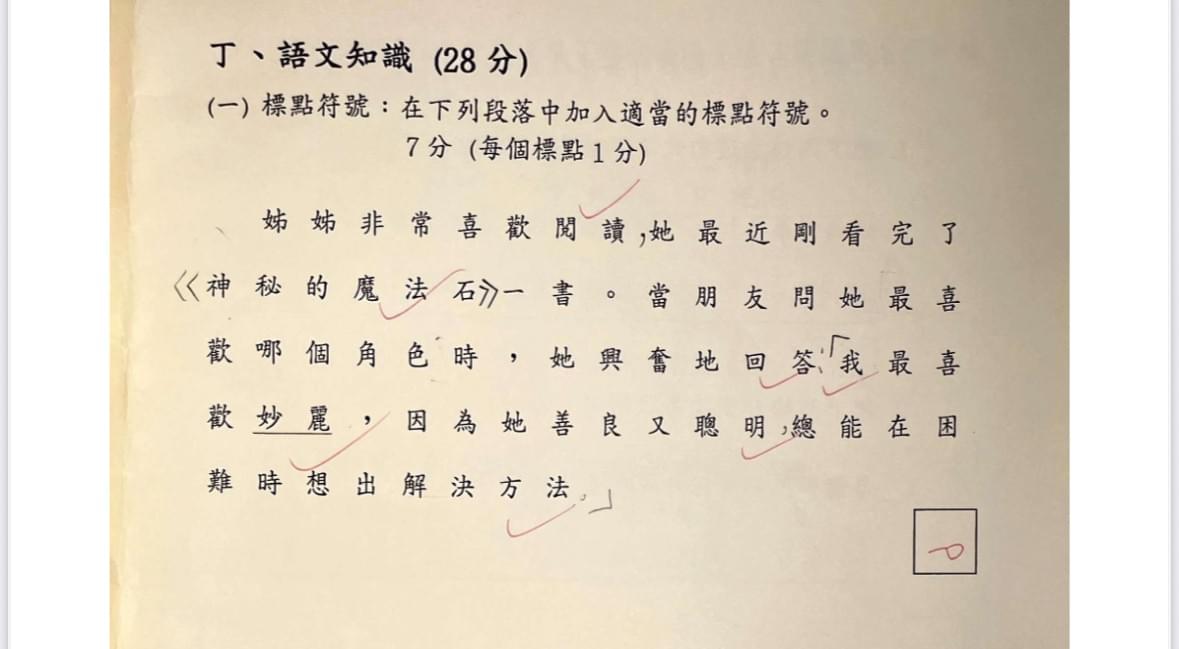 丁、語文知識 (28 分)
(一) 標點符號：在下列段落中加入適當的標點符號。
7 分 (每個標點 1 分)
姊姊非常喜歡閱讀，她最近剛看完了
《神秘的魔法石》一書。當朋友問她最喜
歡哪個角色時，她興奮地回答：「我最喜
歡妙麗，因為她善良又聰明，總能在困
難時想出解決方法。」